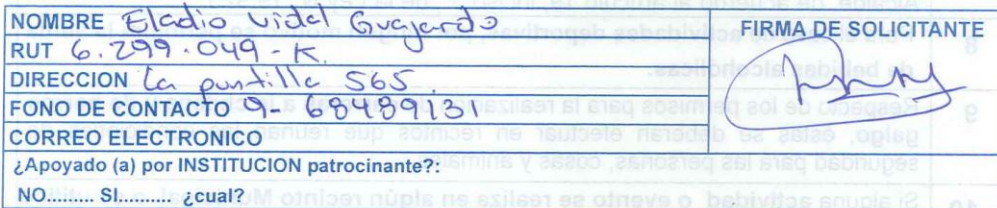 NOMBRE Eladio Vidal Guajardo
RUT 6.299.049-K
DIRECCION La puntilla 565
FONO DE CONTACTO 9-68489131
CORREO ELECTRONICO
¿Apoyado (a) por INSTITUCION patrocinante?:
NO......... SI.......... ¿cual?
FIRMA DE SOLICITANTE